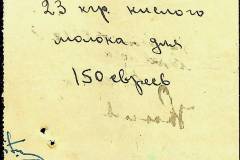 23 кгр. кислого
молока для
150 евреев